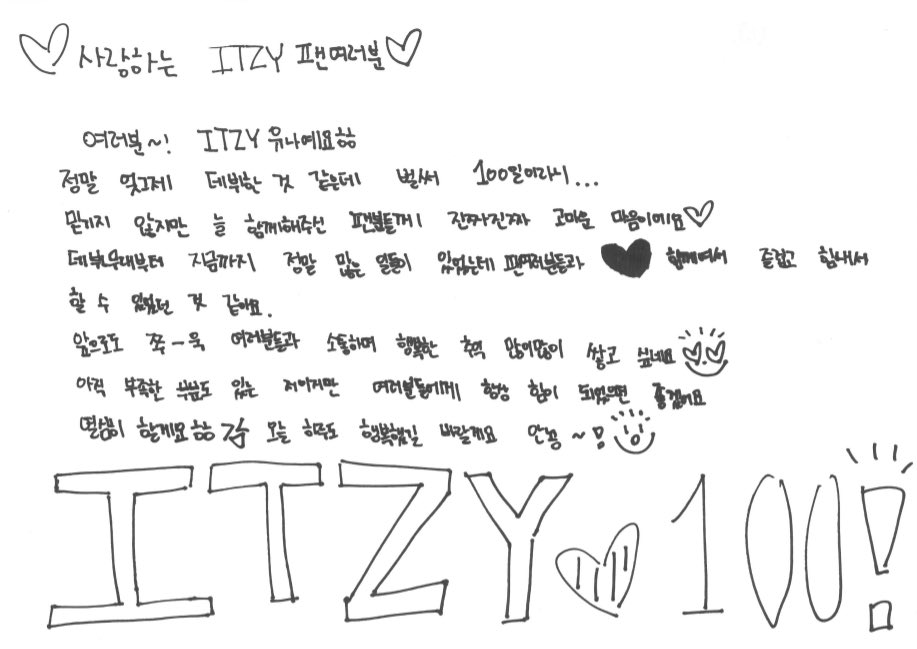 사랑하는 ITZY 팬여러분
여러분~! ITZY 유나예요ㅎㅎ
정말 엊그제 데뷔한 것 같은데 벌써 100일이라니...
믿기지 않지만 늘 함께해주신 팬분들께 진짜진짜 고마운 마음이에요
데뷔무대부터 지금까지 정말 많은 일들이 있었는데 팬여러분들과 함께여서 즐겁고 힘내서
할 수 있었던 것 같아요.
앞으로도 쭈-욱 여러분들과 소통하며 행복한 추억 많이많이 쌓고 싶네요
아직 부족한 부분도 있는 저이지만 여러분들에게 항상 힘이 되었으면 좋겠어요
열심히 할게요ㅎㅎ 오늘 하루도 행복했길 바랄게요 안뇽~!
ITZY 100!